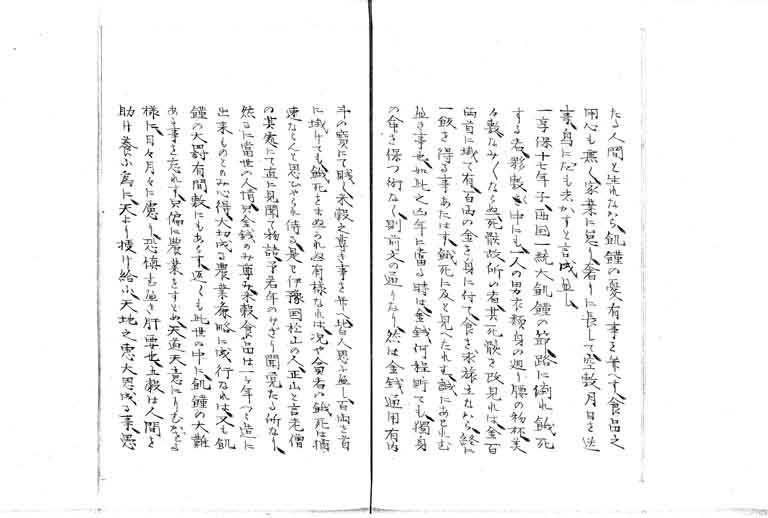 たる人間と生れなから飢饉の憂有事を弁へす食品之
用心も無く家業に怠り奢りに長して空敷月日を送
事鳥にだも志かすと言成へし
一享保十七年子ノ西国一統大飢饉の節路に倒れ餓死
する者夥敷中にも一人の男衣類身の廻り腰の物杯美
々敷なみ〱ならぬ死骸故所の者其死骸を改見れは金百
両首に掛て有百両の金を身に付て食を求禄主なから終に
一飯を得る事あたはす餓死に及と見へたれむ誠にあはれむ
へき事也如此之凶年に当る時は金銭何程貯ても獨身
の命を保つ術なく則前文の通りなり然は金銭通用有内
斗の寶にて賤し米穀之尊き事を弁へ皆人思ふへし百両を首
に掛けても餓死をまぬかれぬ有様なれは況や貧者の餓死は猶
速ならんと思ひやられ侍る是を伊豫国松山の人正山と言老僧
の其處にて直に見聞て物語予若年のみぎり聞覚たる所なり
然るに當世の人情只金銭のみ尊み米穀食品は一ヶ年つゝ造に
出来ものとのみ心得大切成る農業麁略に成行なれは又も飢
饉の天罰有間敷にもあらす返〱も此世の中に飢饉の大難
ある事を忘れす只偏に農業をすゝめ天道天意にりむかざる
様に日々月々に慮り恐慎むへき肝要也五穀は人間を
助け養ふ為に天より授け給ふ天地之恵大恩成る事愚